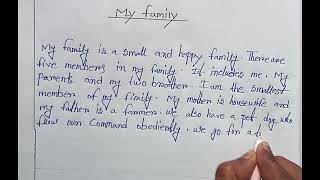 My family
My family is a small and happy family. There are
five members in my family. It includes me. My
parents and my two broother. I am the smallest
member of my fimily. My mother is housewife and
my father is a farmer. We also have a pet dog who
flow our Command obediently. we go for a